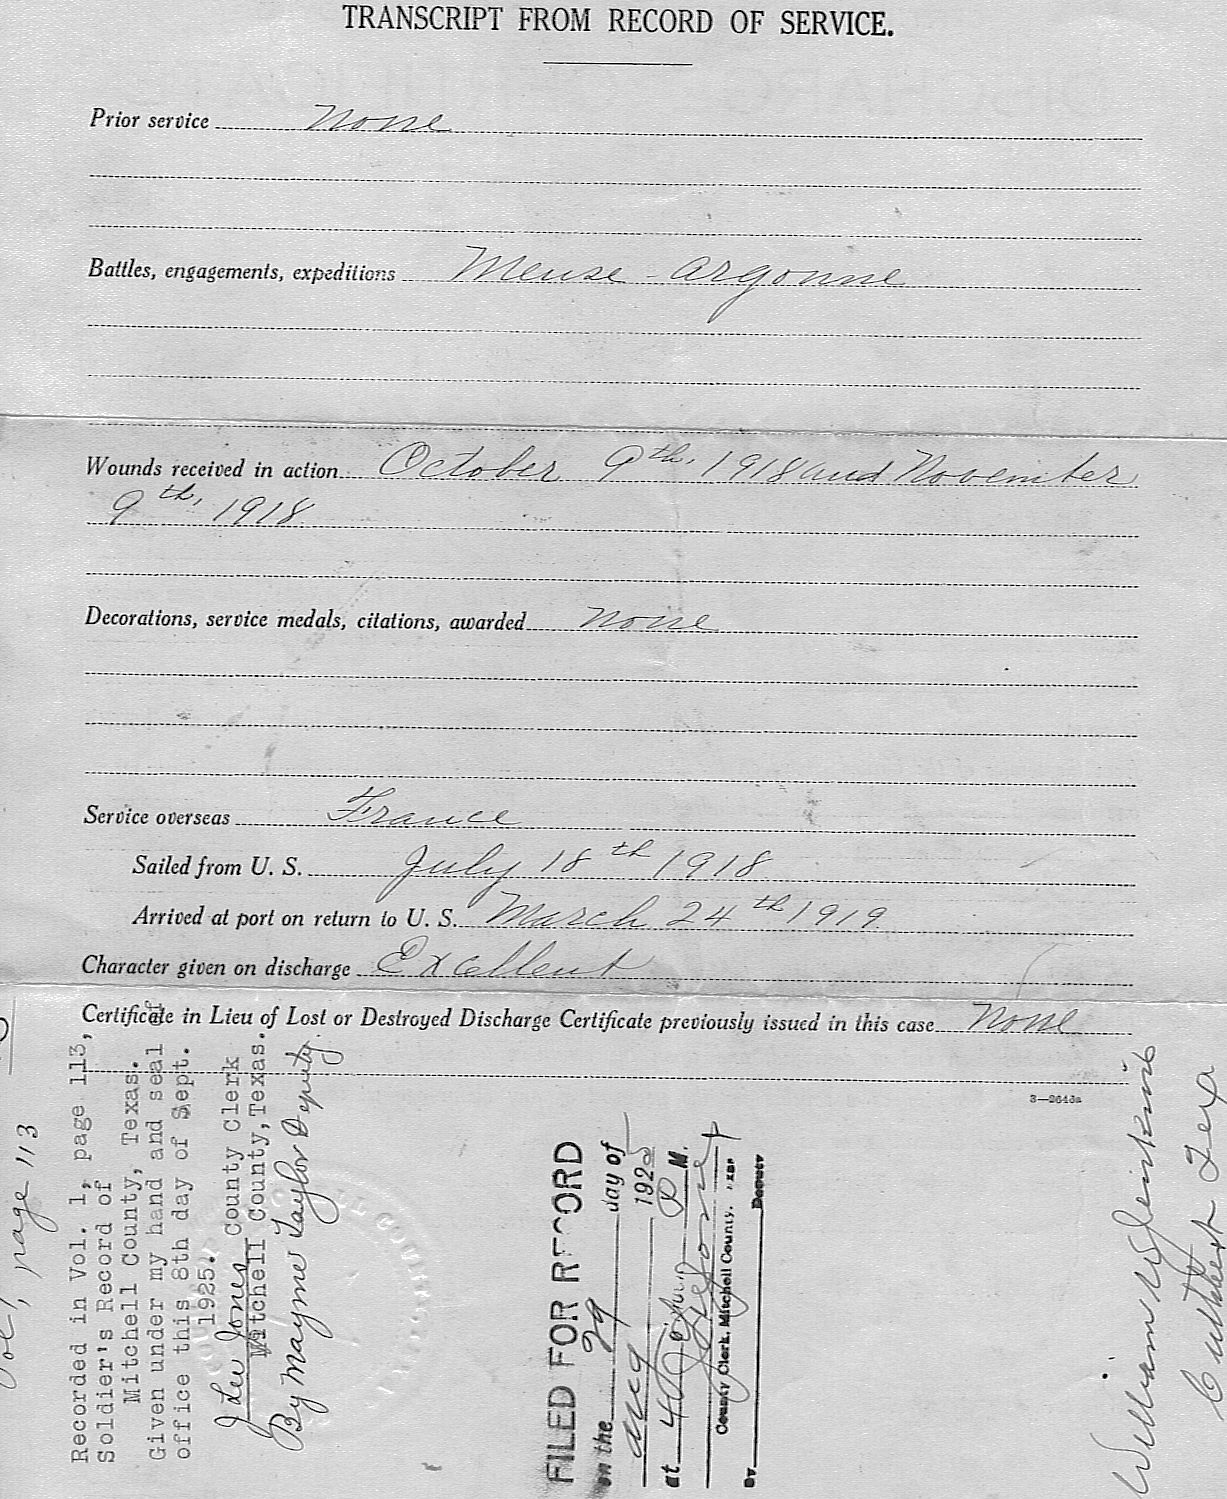 TRANSCRIPT FROM RECORD OF SERVICE.
Prior service None
Battles, engagements, expeditions Meuse - Argonne
Wounds received in action October 9th, 1918 and November
9th, 1918
Decorations, service medals, citations, awarded None
Service overseas France
Sailed from U. S. July 18th 1918
Arrived at port on return to U. S. March 24th 1919
Character given on discharge Excellent
Certificate in Lieu of Lost or Destroyed Discharge Certificate previously issued in this case None
3—2646a
page 113
Recorded in Vol. 1, page 113,
Soldier's Record of
Mitchell County, Texas.
Given under my hand and seal of
office this 8th day of Sept.
1925.
J Lee Jones County Clerk
Mitchell County, Texas.
By Mayme Taylor Deputy.
FILED FOR RECORD
on the 29 day of
Aug 1925
at 4 P M.
J Lee Jones
County Clerk, Mitchell County, Texas
By Deputy
William W Jenkins
Cuthbert Tex